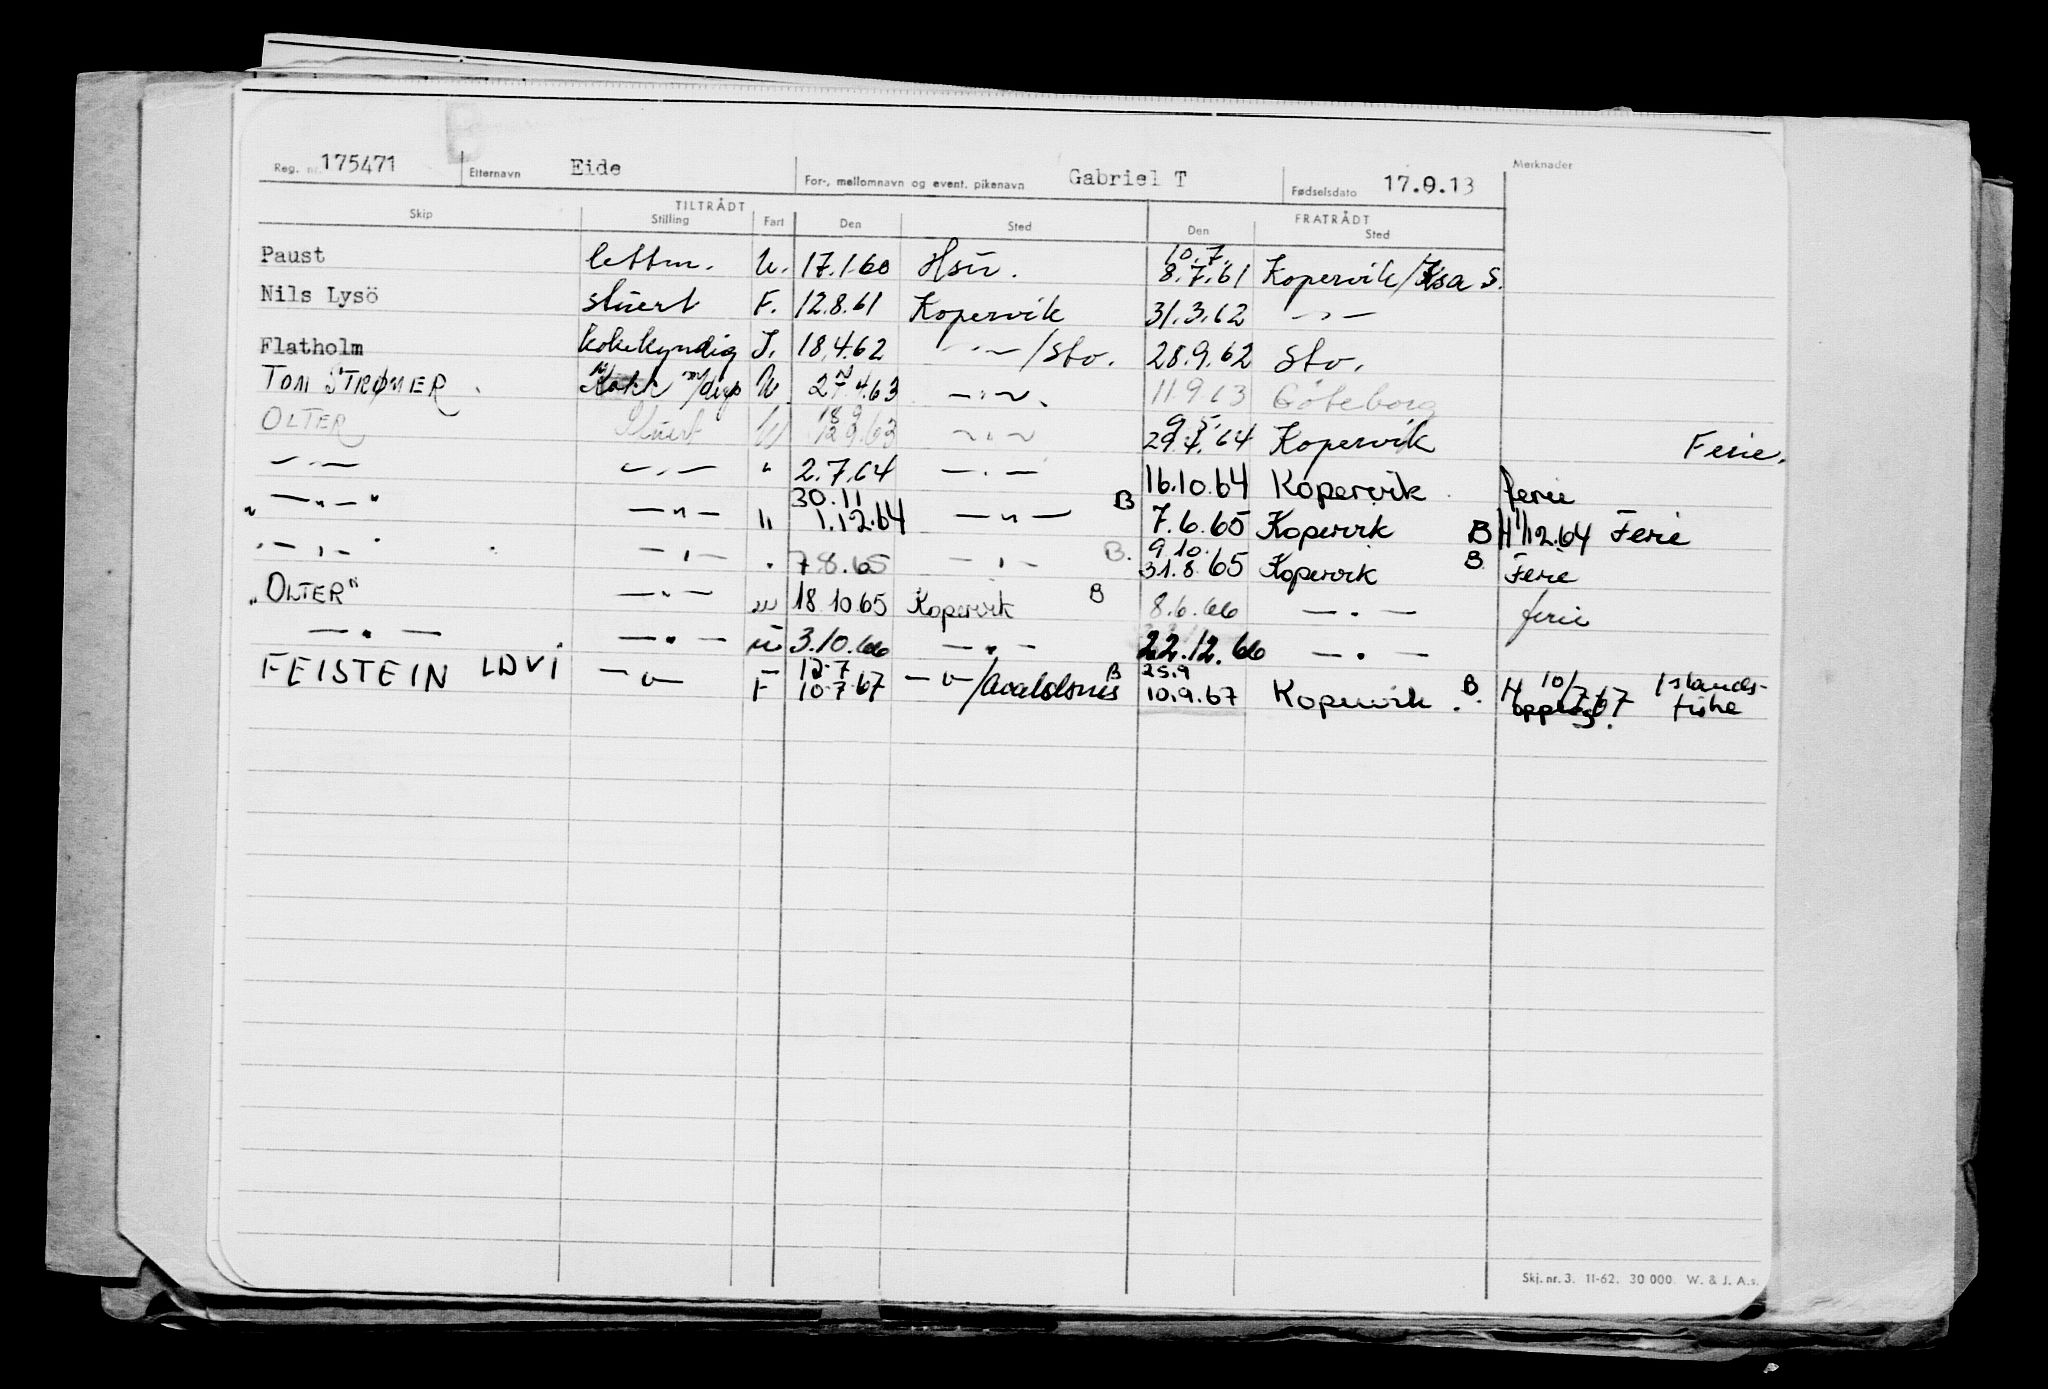 Reg. nr. 175471 Etternavn Eide For-, mellomnavn og event. pikenavn Gabriel T Fødselsdato 17.9.13 Merknader
TILTRÅDT FRATRÅDT
Skip Stilling Fart Den Sted Den Sted
Paust lettm. U. 17.1.60 10.7. 8.7.61 Kopervik/
Nils Lysö stuert F. 12.8.61 Kopervik 31.3.62 — " —
Flatholm kokekyndig I. 18.4.62 — " —/Sto. 28.9.62 Sto.
TOM STRØMER Kokk U 27.4.63 — " —. 11.9.63 Göteborg
OLTER Stuert U 18 9 12 9.63 — " — 9 5. 29.4.64 Kopervik Ferie.
— " — — " — " 2.7.64 — " — 16.10.64 Kopervik ferie
" — " — " — " — " 30.11 1.12.64 — " — B 7.6.65 Kopervik B H 1/12.64 Ferie
" — " — " — " — " 7.8.65 — " — B. 9.10. 31.8.65 Kopervik B Ferie
"OLTER" — " — " 18.10.65 Kopervik B 8.6.66 — " — ferie
— " — — " — u. 3.10.66 — " — 22.12.66 — " —
FEISTEIN LDVI — " — F 12.7 10.7.67 — " —/Avaldsnes B 25.9 10.9.67 Kopervik. B. H 10/7.67 Islands-
fiske
Skj. nr. 3. 11-62. 30 000. W. & J. A.s.